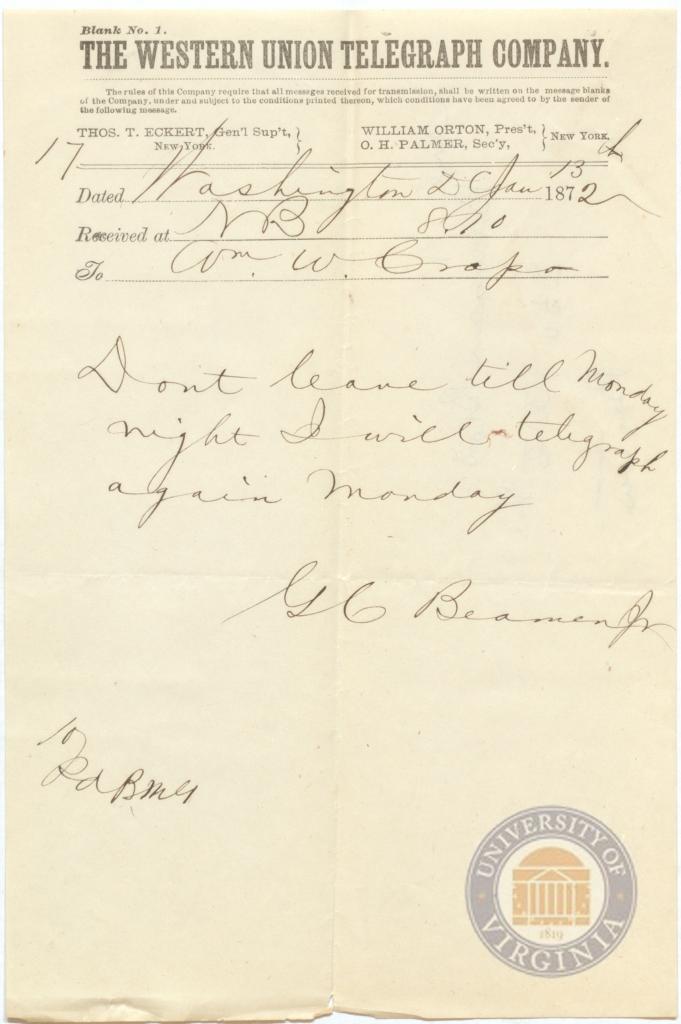 Blank No. 1.
THE WESTERN UNION TELEGRAPH COMPANY.
The rules of this Company require that all messages received for transmission, shall be written on the message blanks
of the Company, under and subject to the conditions printed thereon, which conditions have been agreed to by the sender of
the following message.
THOS. T. ECKERT, Gen'l Sup't, } NEW YORK.
WILLIAM ORTON, Pres't, O. H. PALMER, Sec'y, } NEW YORK.
17
Dated Washington DC Jan 13 1872
Received at NB 8.10
To Wm. W. Crapo
Dont leave till Monday
night I will telegraph
again Monday
G C Beamen Jr
10
Pd
UNIVERSITY OF VIRGINIA
1819